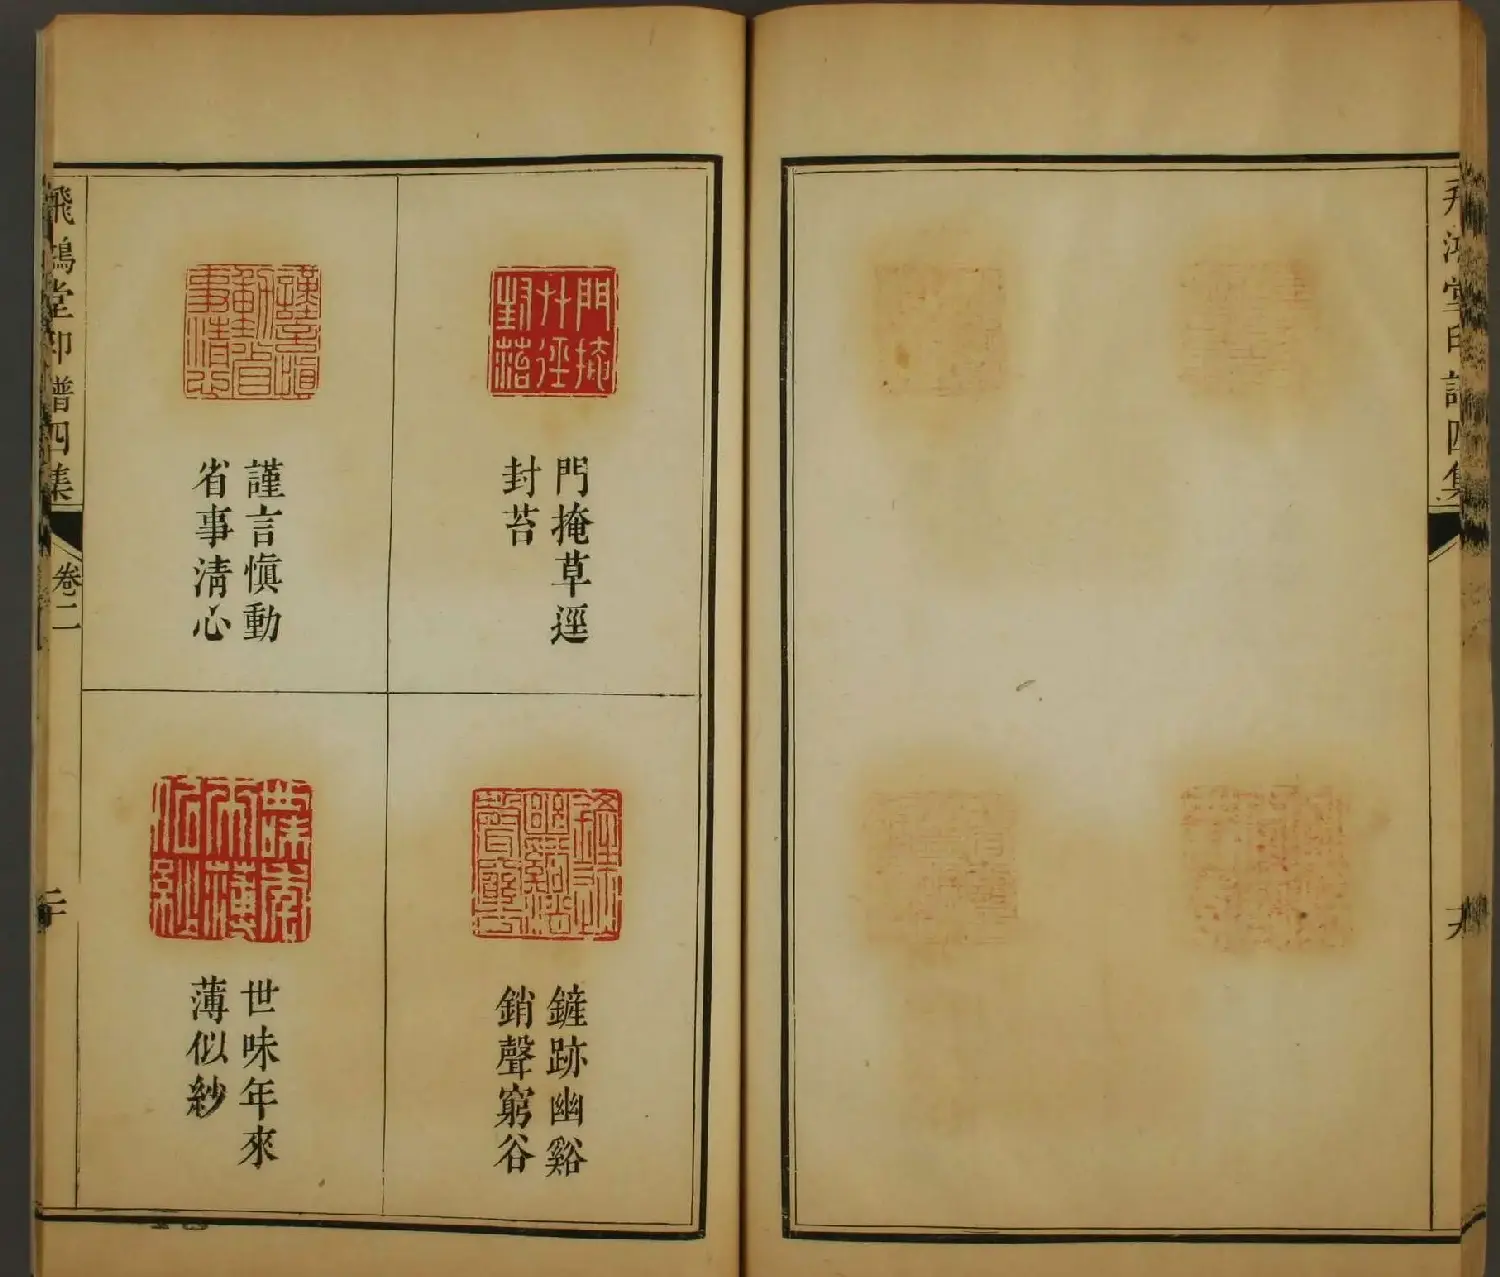 飛鴻堂印譜四集
門掩草逕
封苔
謹言愼動
省事淸心
鏟跡幽谿
銷聲窮谷
世味年來
薄似紗
飛鴻堂印譜四集
卷二
二十